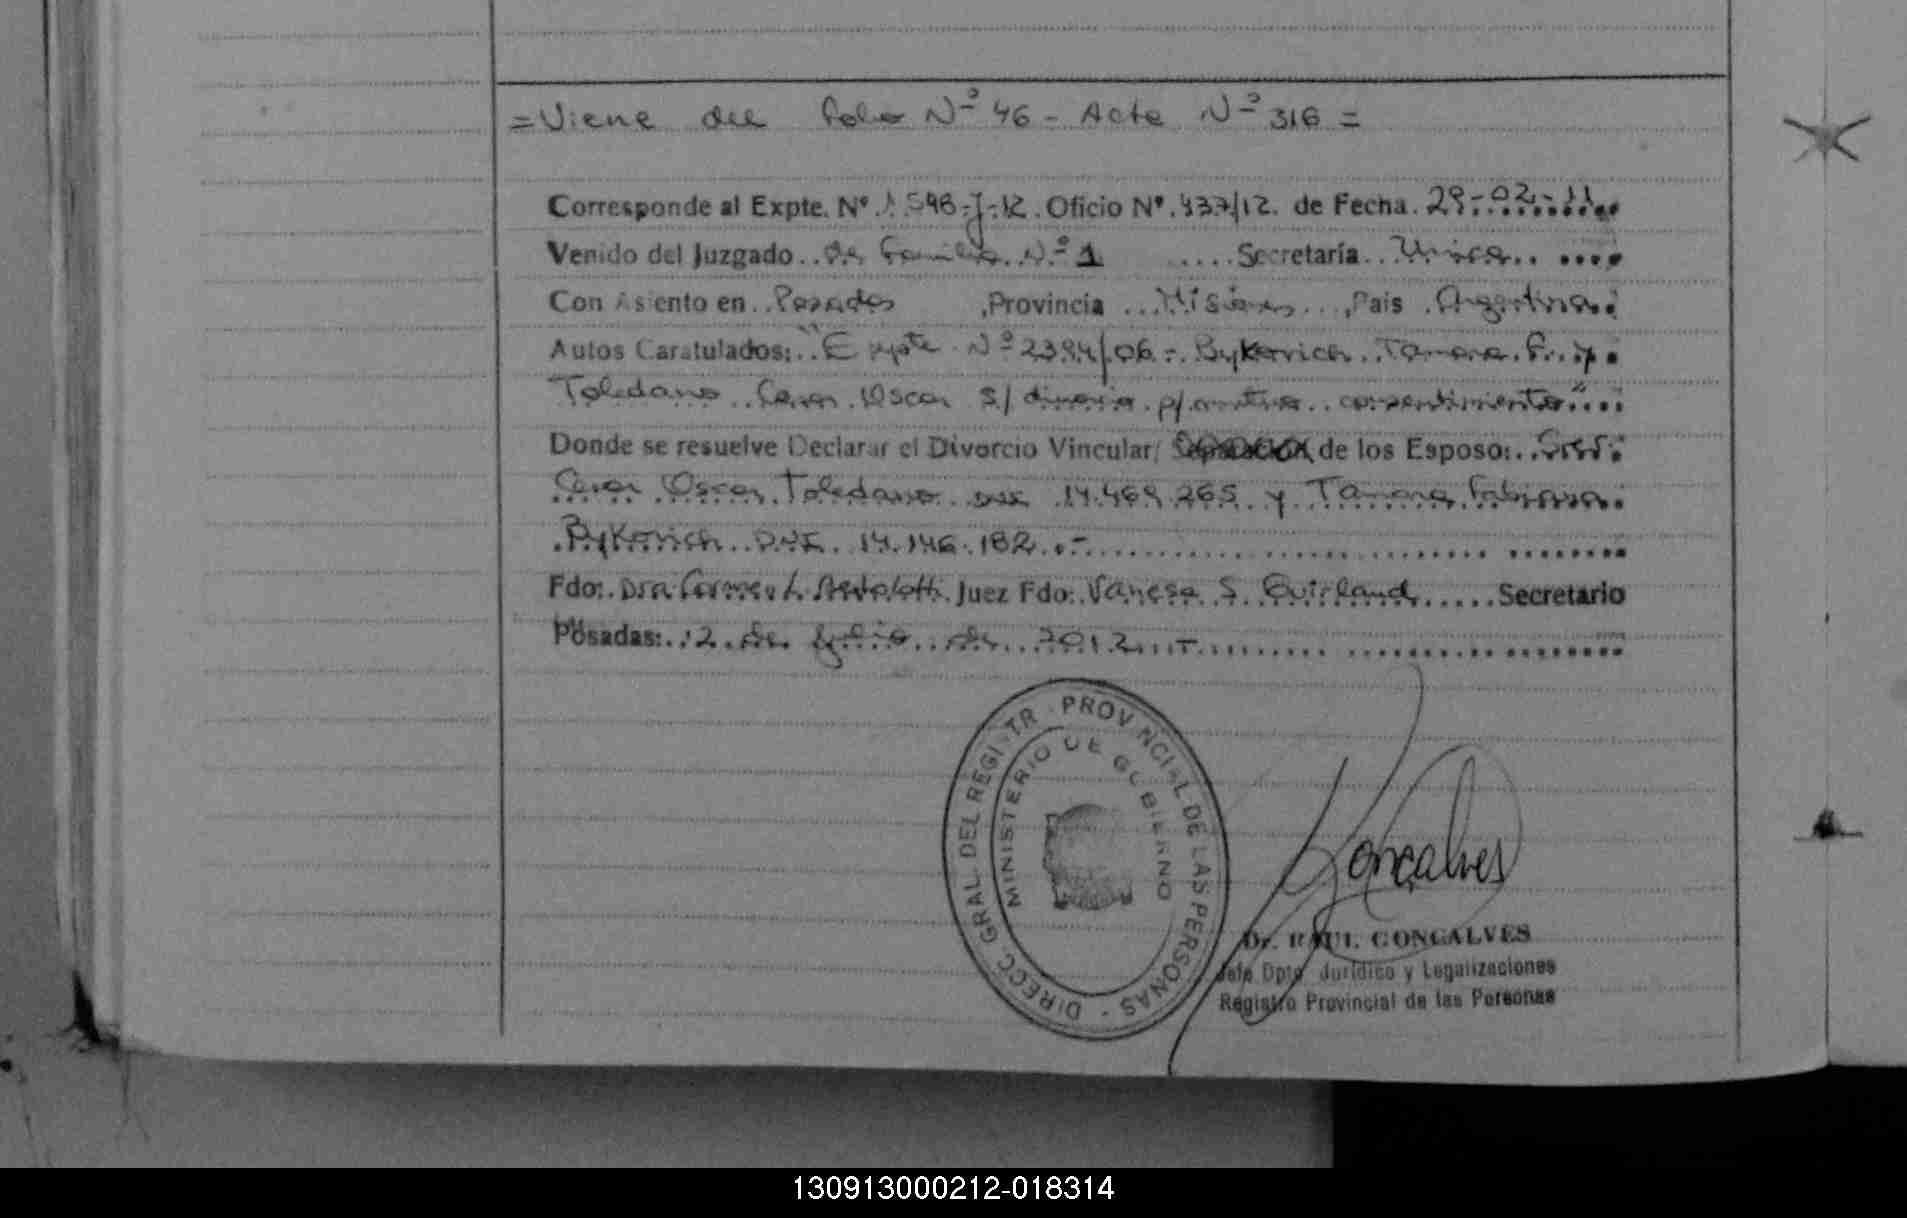 =Viene del folio Nº 46 - Acta Nº 316 =
Corresponde al Expte. Nº 1598-J-12. Oficio Nº. 437/12. de Fecha. 29-02-11
Venido del Juzgado de Familia Nº 1 Secretaría Unica
Con Asiento en Posadas ,Provincia Misiones ,País Argentina
Autos Caratulados: "Expte Nº 2394/06 - Bykovich Tamara F. y
Toledano Cesar Oscar S/ divorcio p/ mutuo consentimiento"
Donde se resuelve Declarar el Divorcio Vincular/ de los Esposo: Sres.
Cesar Oscar Toledano DNI 14.469.265 y Tamara Fabiana
Bykovich D.N.I. 14.146.182.-
Fdo: Dra. Carmen L. Juez Fdo: Vanesa S. Secretario
Posadas: 12 de Julio de 2012.-
DIRECC. GRAL. DEL REGISTR. PROVINCIAL DE LAS PERSONAS -
MINISTERIO DE GOBIERNO
Goncalves
Dr. RAUL GONCALVES
Jefe Dpto. Jurídico y Legalizaciones
Registro Provincial de las Personas
130913000212-018314